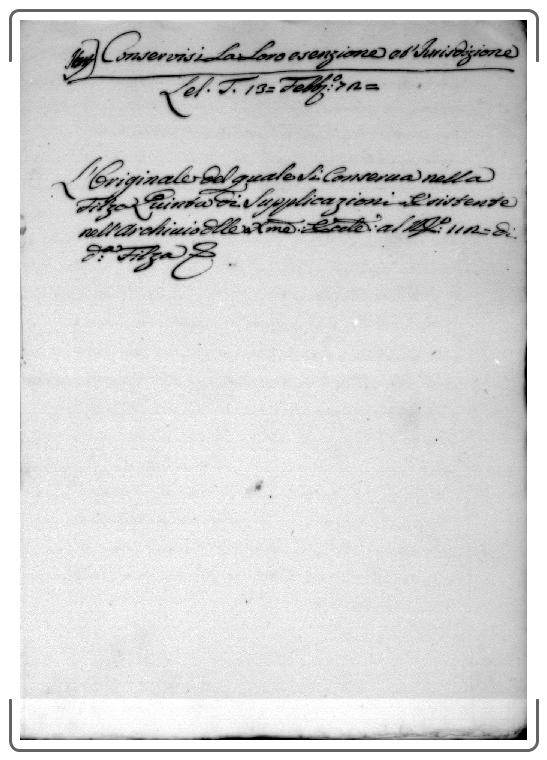 Conservisi La Loro esenzione, et Jurisdizione
Lel. T. 13= Febb:º 72=
L'Originale del quale si Conserua nella
Filza Quinta di Supplicazioni Esistente
nell'Archivio dlle al Nº: 112= di
d:ª Filza